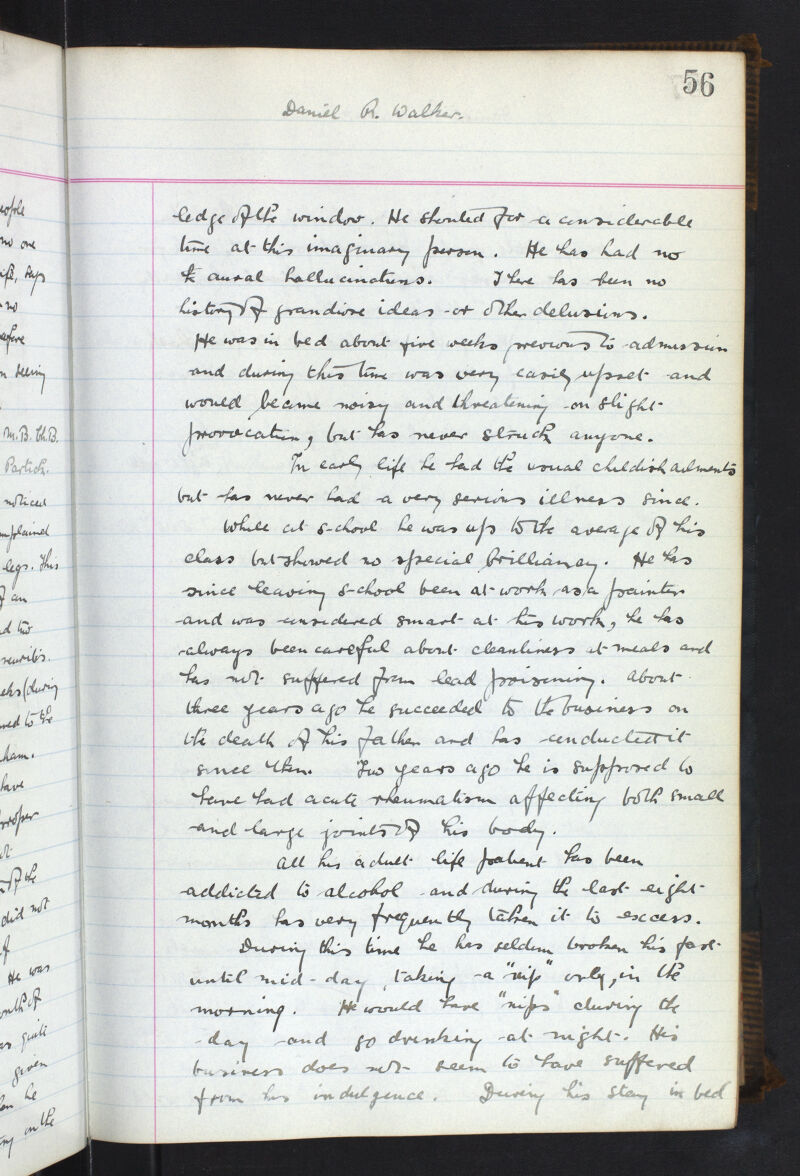 56
Daniel R. Walker.
ledge of the window. He shouted for a considerable
time at this imaginary person. He has had no
aural hallucinations. There has been no
history of grandiose ideas or other delusions.
He was in bed about five weeks previous to admission
and during this time was very easily upset and
would became noisy and threatening on slight
provocation, but has never struck anyone.
In early life he had the usual childish ailments
but has never had a very serious illness since.
While at school he was up to the average of his
class but showed no special brilliancy. He has
since leaving school been at work as a painter
and was considered smart at his work, he has
always been careful about cleanliness at meals and
has not suffered from lead poisoning. About
three years ago he succeeded to the business on
the death of his father and has conducted it
since then. Two years ago he is supposed to
have had acute rheumatism affecting both small
and large joints of his body.
All his adult life patient has been
addicted to alcohol and during the last eight
months has very frequently taken it to excess.
During this time he has seldom broken his fast
until mid-day, taking a "nip" only, in the
morning. He would have "nips" during the
day and go drinking at night. His
business does not seem to have suffered
from his indulgence. During his stay in bed
eople
no one
wife, says
no
before
n seeing
M.B. Ch.B.
Partick.
noticed
mplained
legs. This
of an
nd two
neuritis.
eks (during
ved to the
ham.
have
proper
of the
did not
of
He was
onth of
as quite
given
en he
ing on the